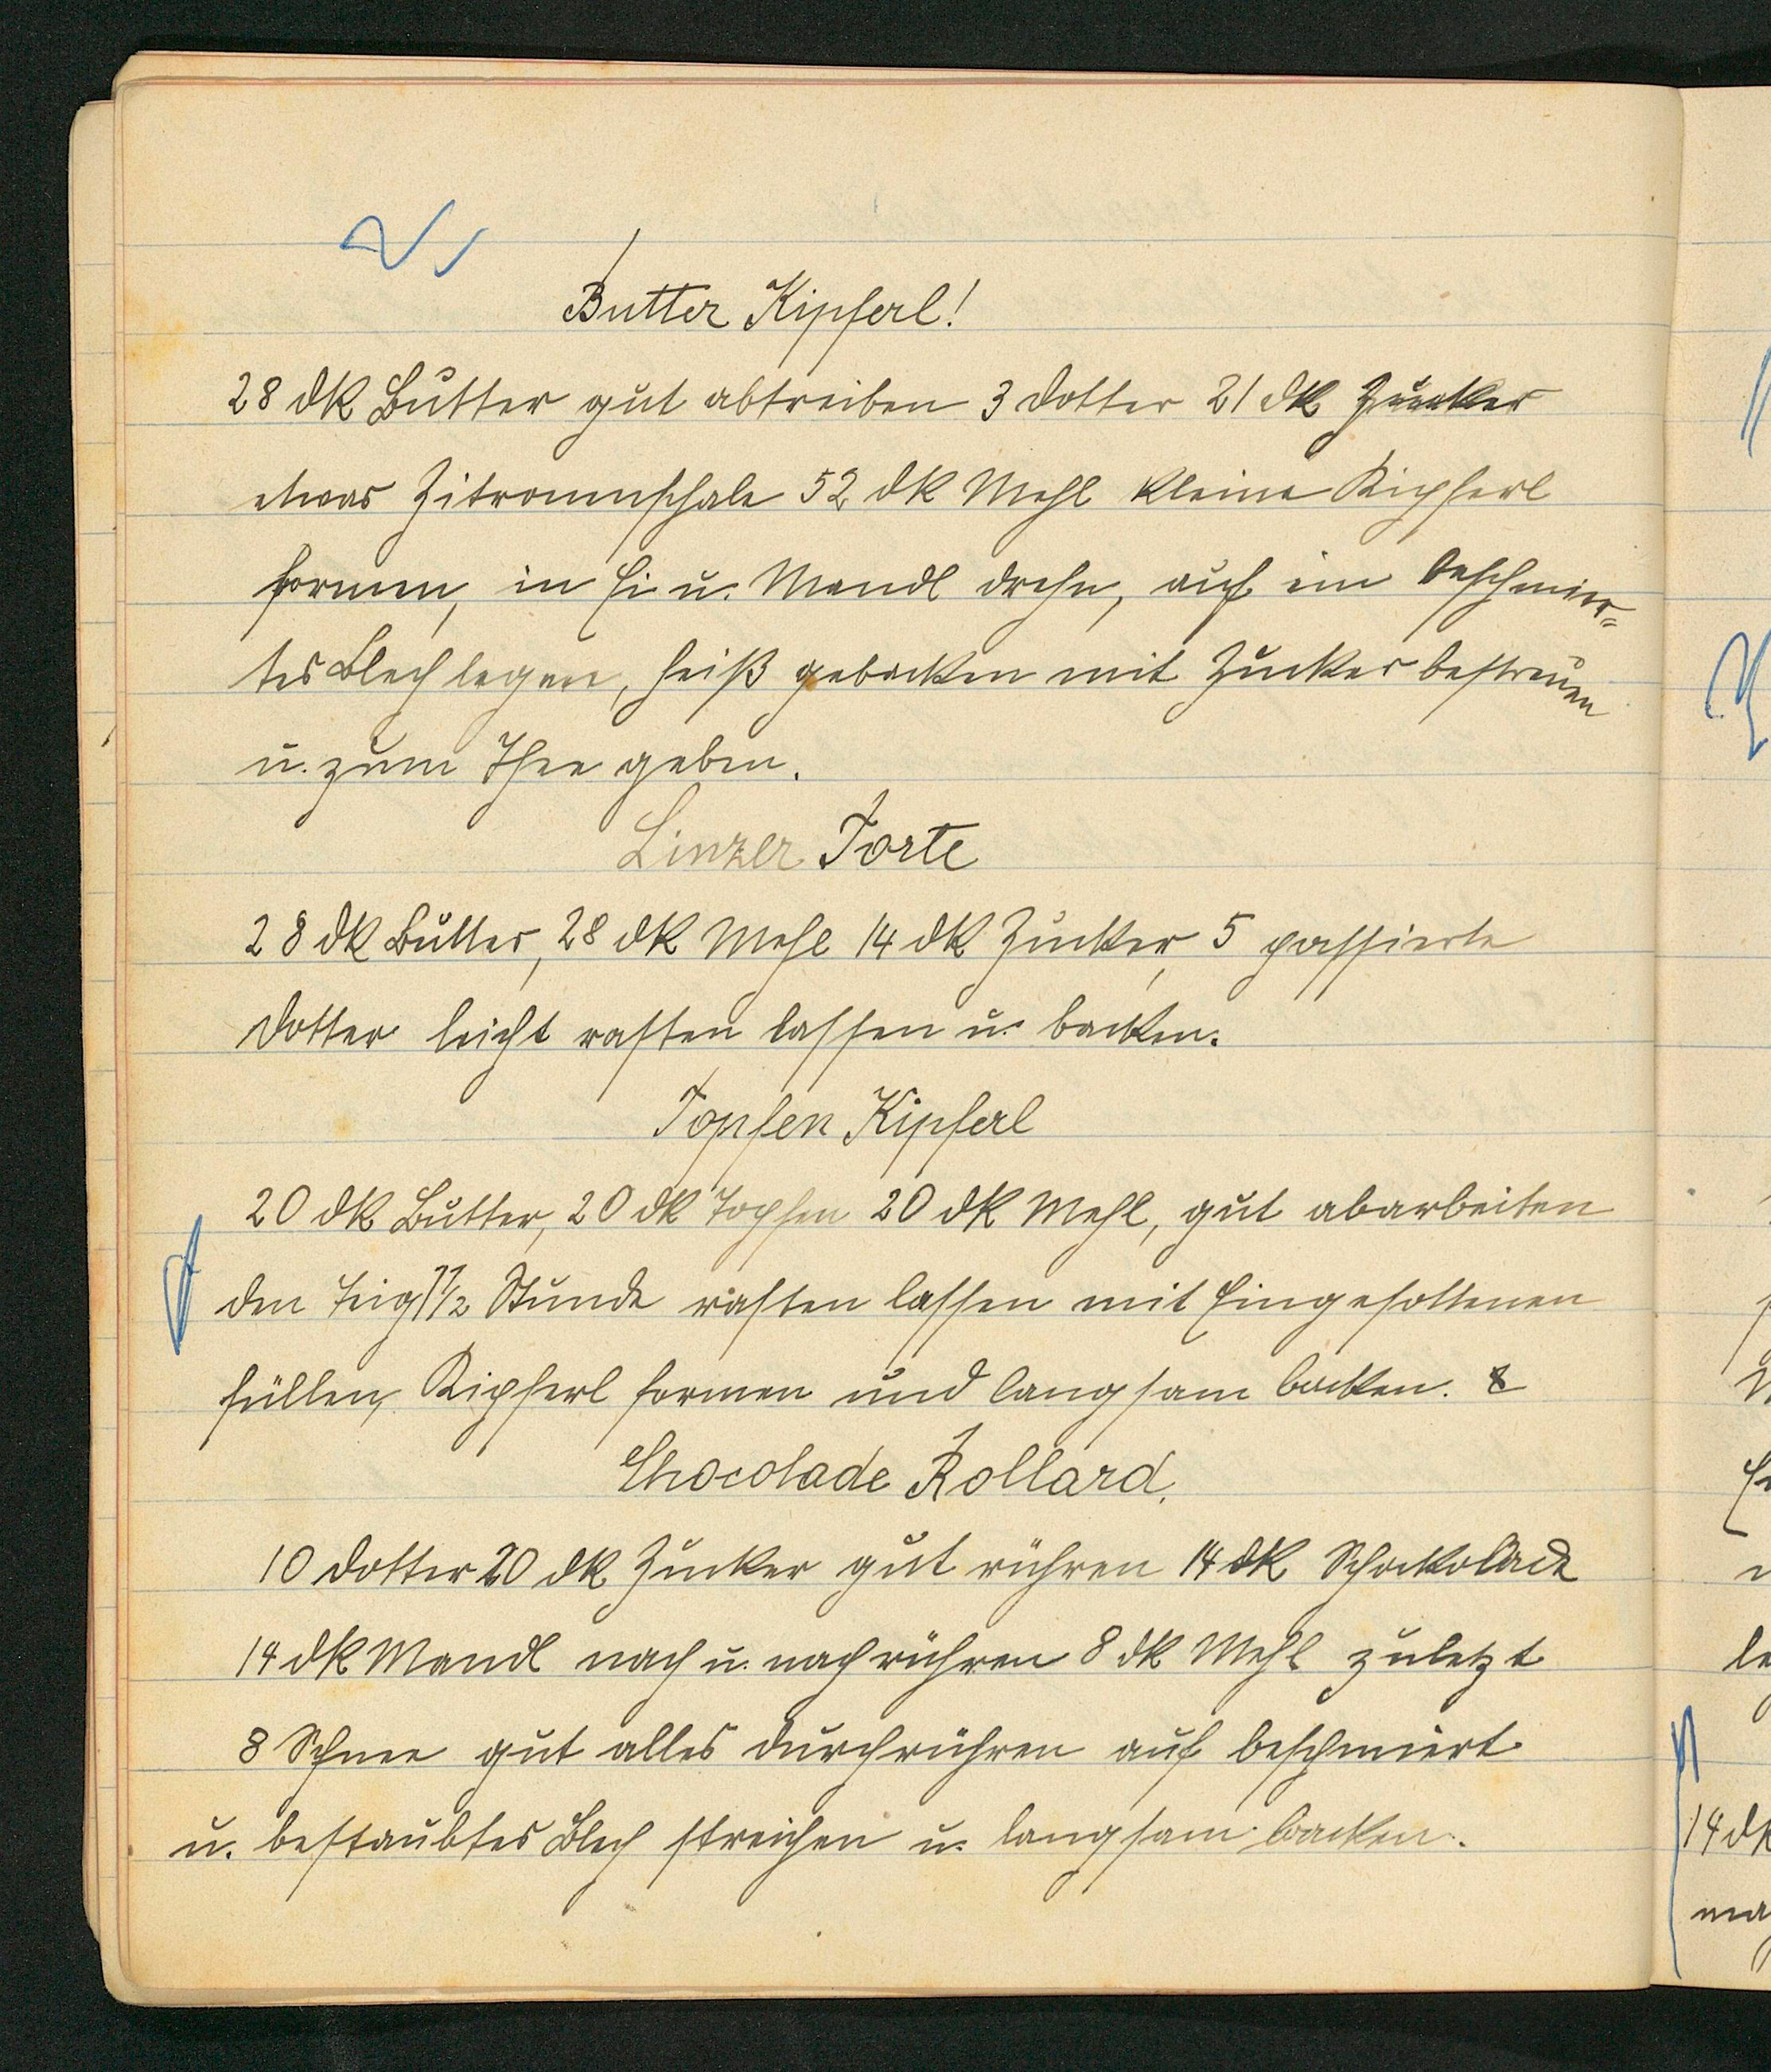 Butter Kipferl!
28 dk Butter gut abtreiben 3 Dotter 21 dk Zucker
etwas Zitronenschale 52 dk Mehl kleine Kipferl
formen, in Ei u. Mandl drehn, auf ein beschmier=
tes Blech legen, heiß gebacken mit Zucker bestreuen
u. zum Thee geben.
Linzer Torte
28 dk Butter, 28 dk Mehl 14 dk Zucker, 5 passierte
Dotter leicht rasten lassen u. backen.
Topfen Kipferl
20 dk Butter, 20 dk Topfen 20 dk Mehl, gut abarbeiten
den Teig 1/2 Stunde rasten lassen mit Eingesottenen
füllen, Kipferl formen und langsam backen.
Chocolade Rollard.
10 Dotter 20 dk Zucker gut rühren 14 dk Schockolade
14 dk Mandl nach u. nach rühren 8 dk Mehl zuletzt
8 Schnee gut alles durchrühren auf beschmiert
u. bestaubtes Blech streichen u. langsam backen.
14 dk